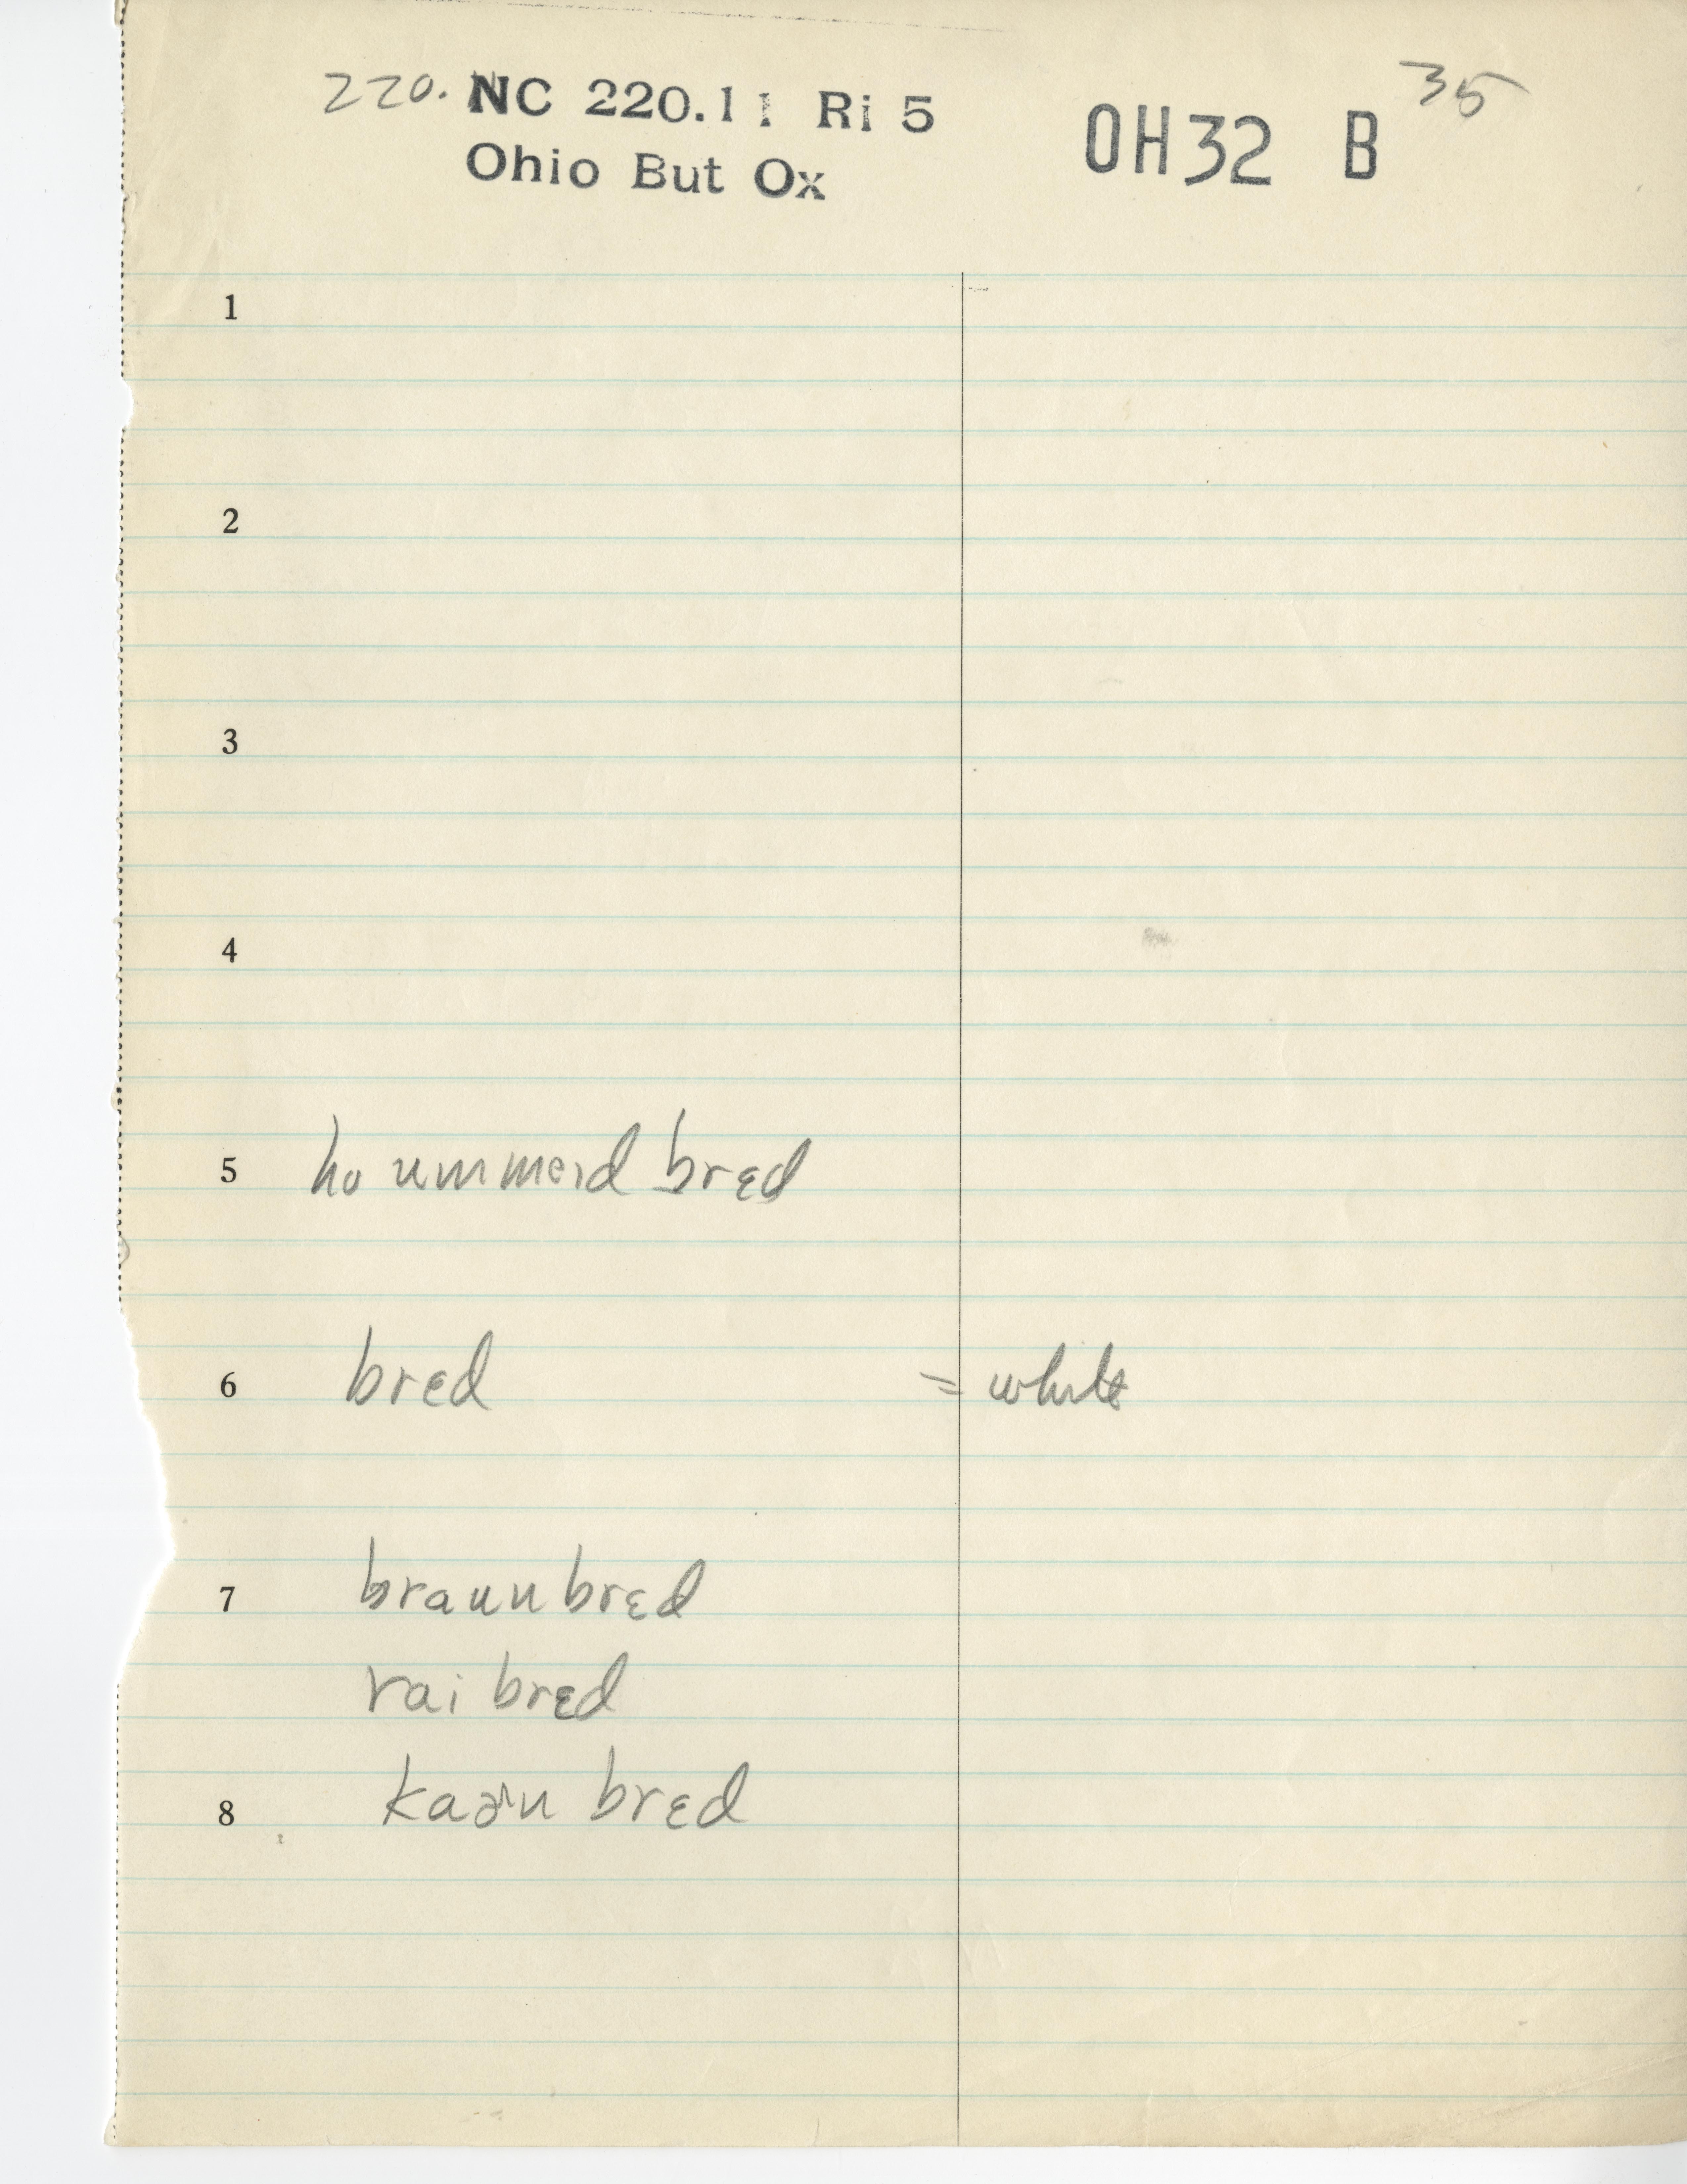 220. NC 220.11 Ri 5
Ohio But Ox
OH32 B 35
1
2
3
4
5 bred
6 bred = white
7 braun brɛd
rai brɛd
8 brɛd